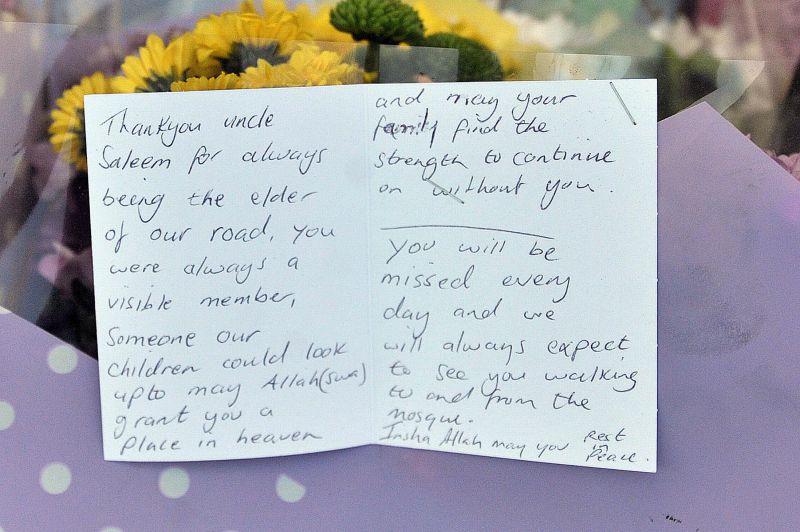 Thankyou uncle
Saleem for always
being the elder
of our road, you
were always a
visible member,
Someone our
children could look
upto may Allah(swa)
grant you a
place in heaven
and may your
family find the
strength to continue
on without you.
you will be
missed every
day and we
will always expect
to see you walking
to and from the
mosque.
Insha Allah may you Rest
in
Peace.